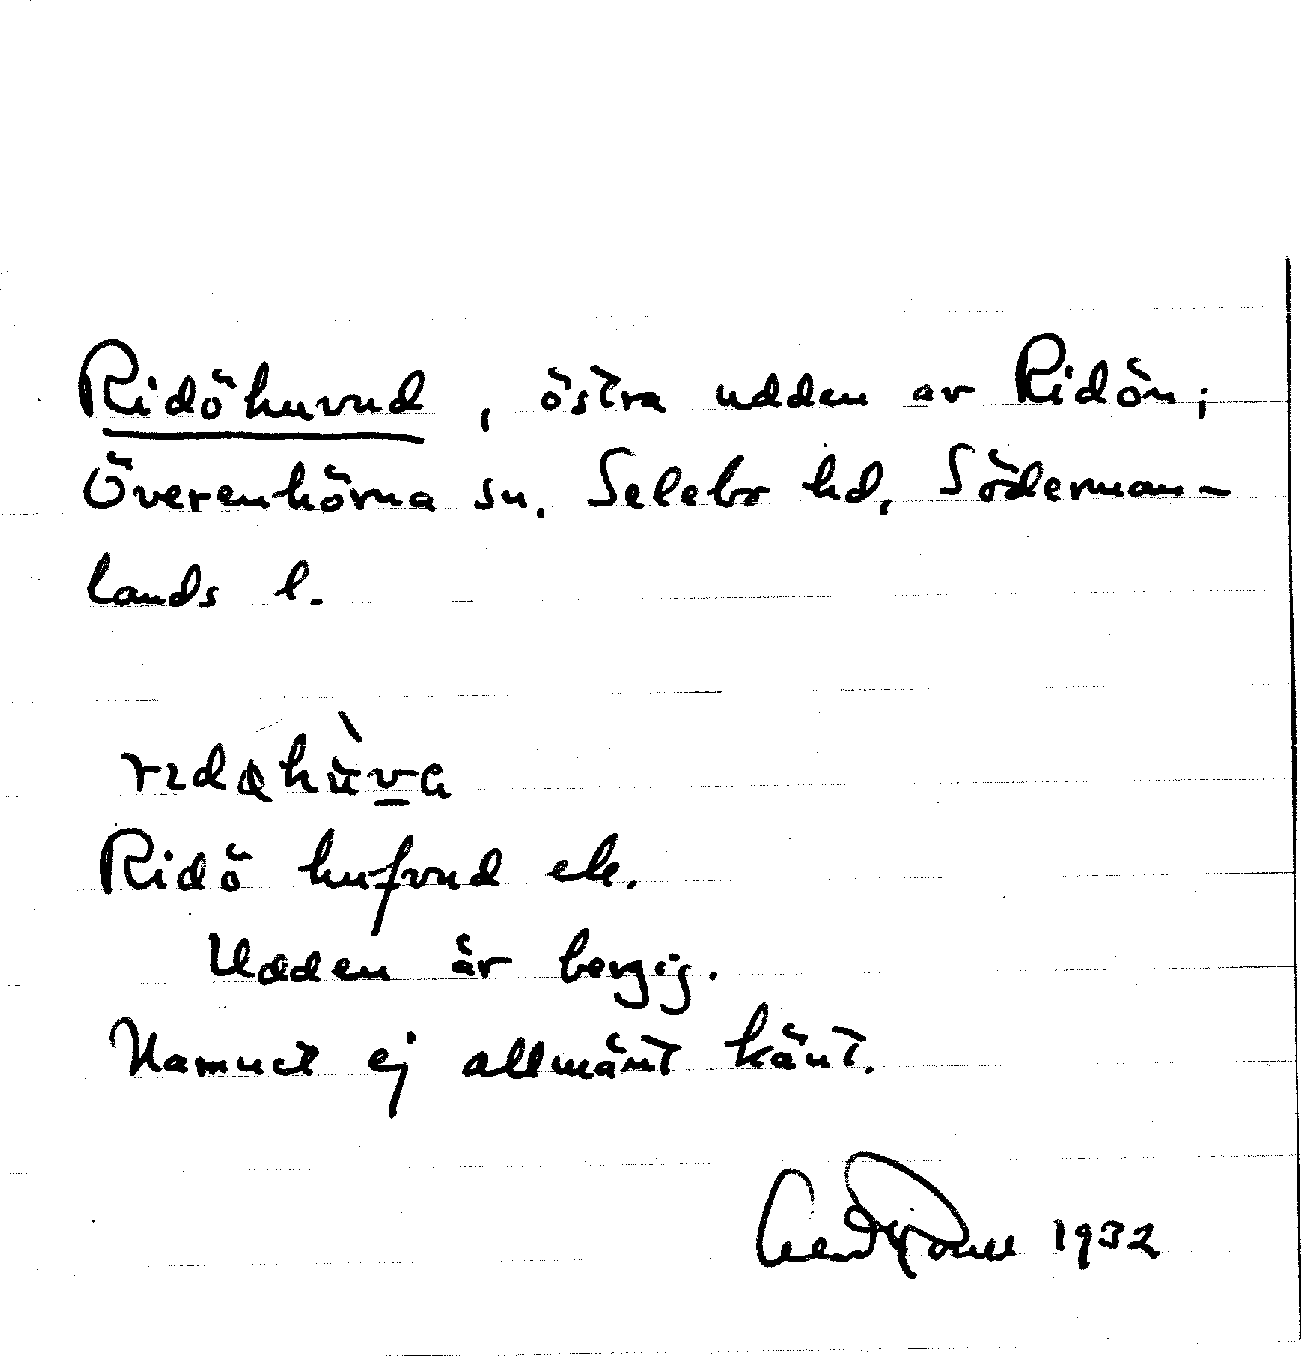 Ridöhuvud, östra udden av Ridön;
Överenhörna sn. Selebo hd, Söderman-
lands l.
Ridö hufvud ek.
Udden är bergig.
Namnet ej allmänt känt.
1932